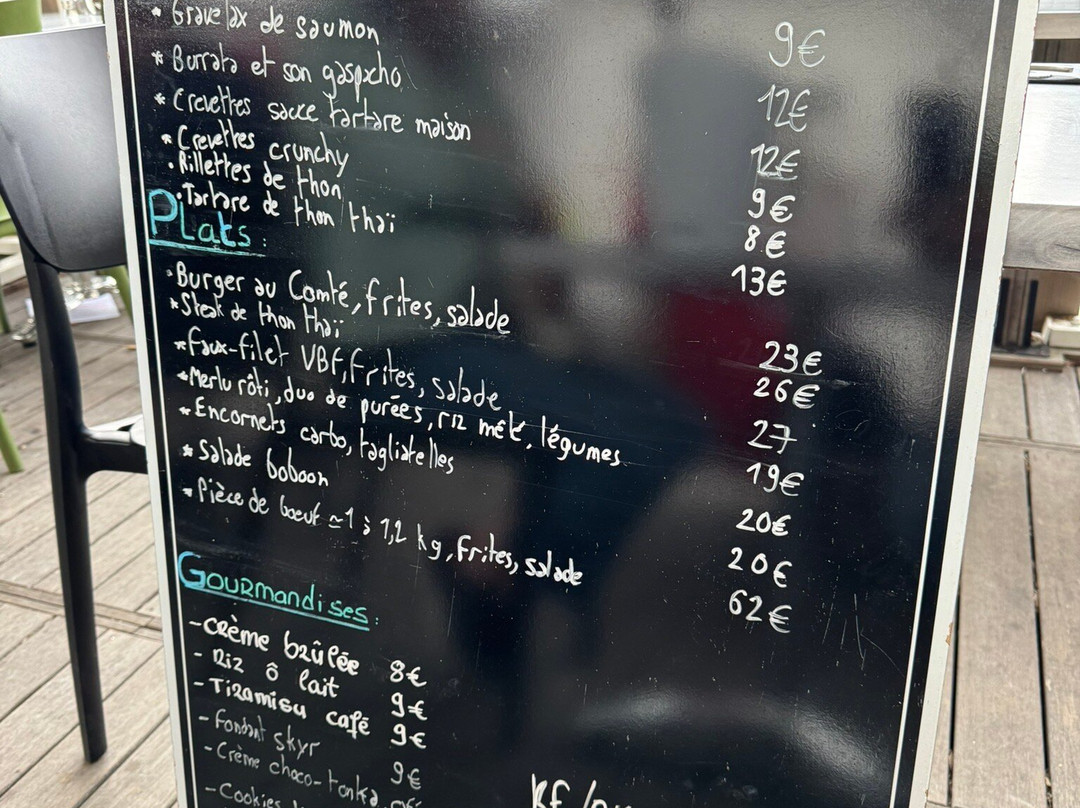 * Gravelax de saumon 9€
* Burrata et son gaspacho 12€
* Crevettes sauce tartare maison 12€
* Crevettes crunchy 9€
· Rillettes de thon 8€
· Tartare de thon thaï 13€
Plats :
· Burger au Comté, frites, salade 23€
* Steak de thon thaï 26€
* Faux-filet VBF, frites, salade 27
* Merlu rôti, duo de purées, riz mêlé, légumes 19€
* Encornets carbo, tagliatelles 20€
* Salade boboon 20€
* Pièce de boeuf ≃ 1 à 1,2 kg, frites, salade 62€
Gourmandises :
- Crème brûlée 8€
- Riz ô lait 9€
- Tiramisu café 9€
- Fondant skyr 9€
- Crème choco-tonka
- Cookies